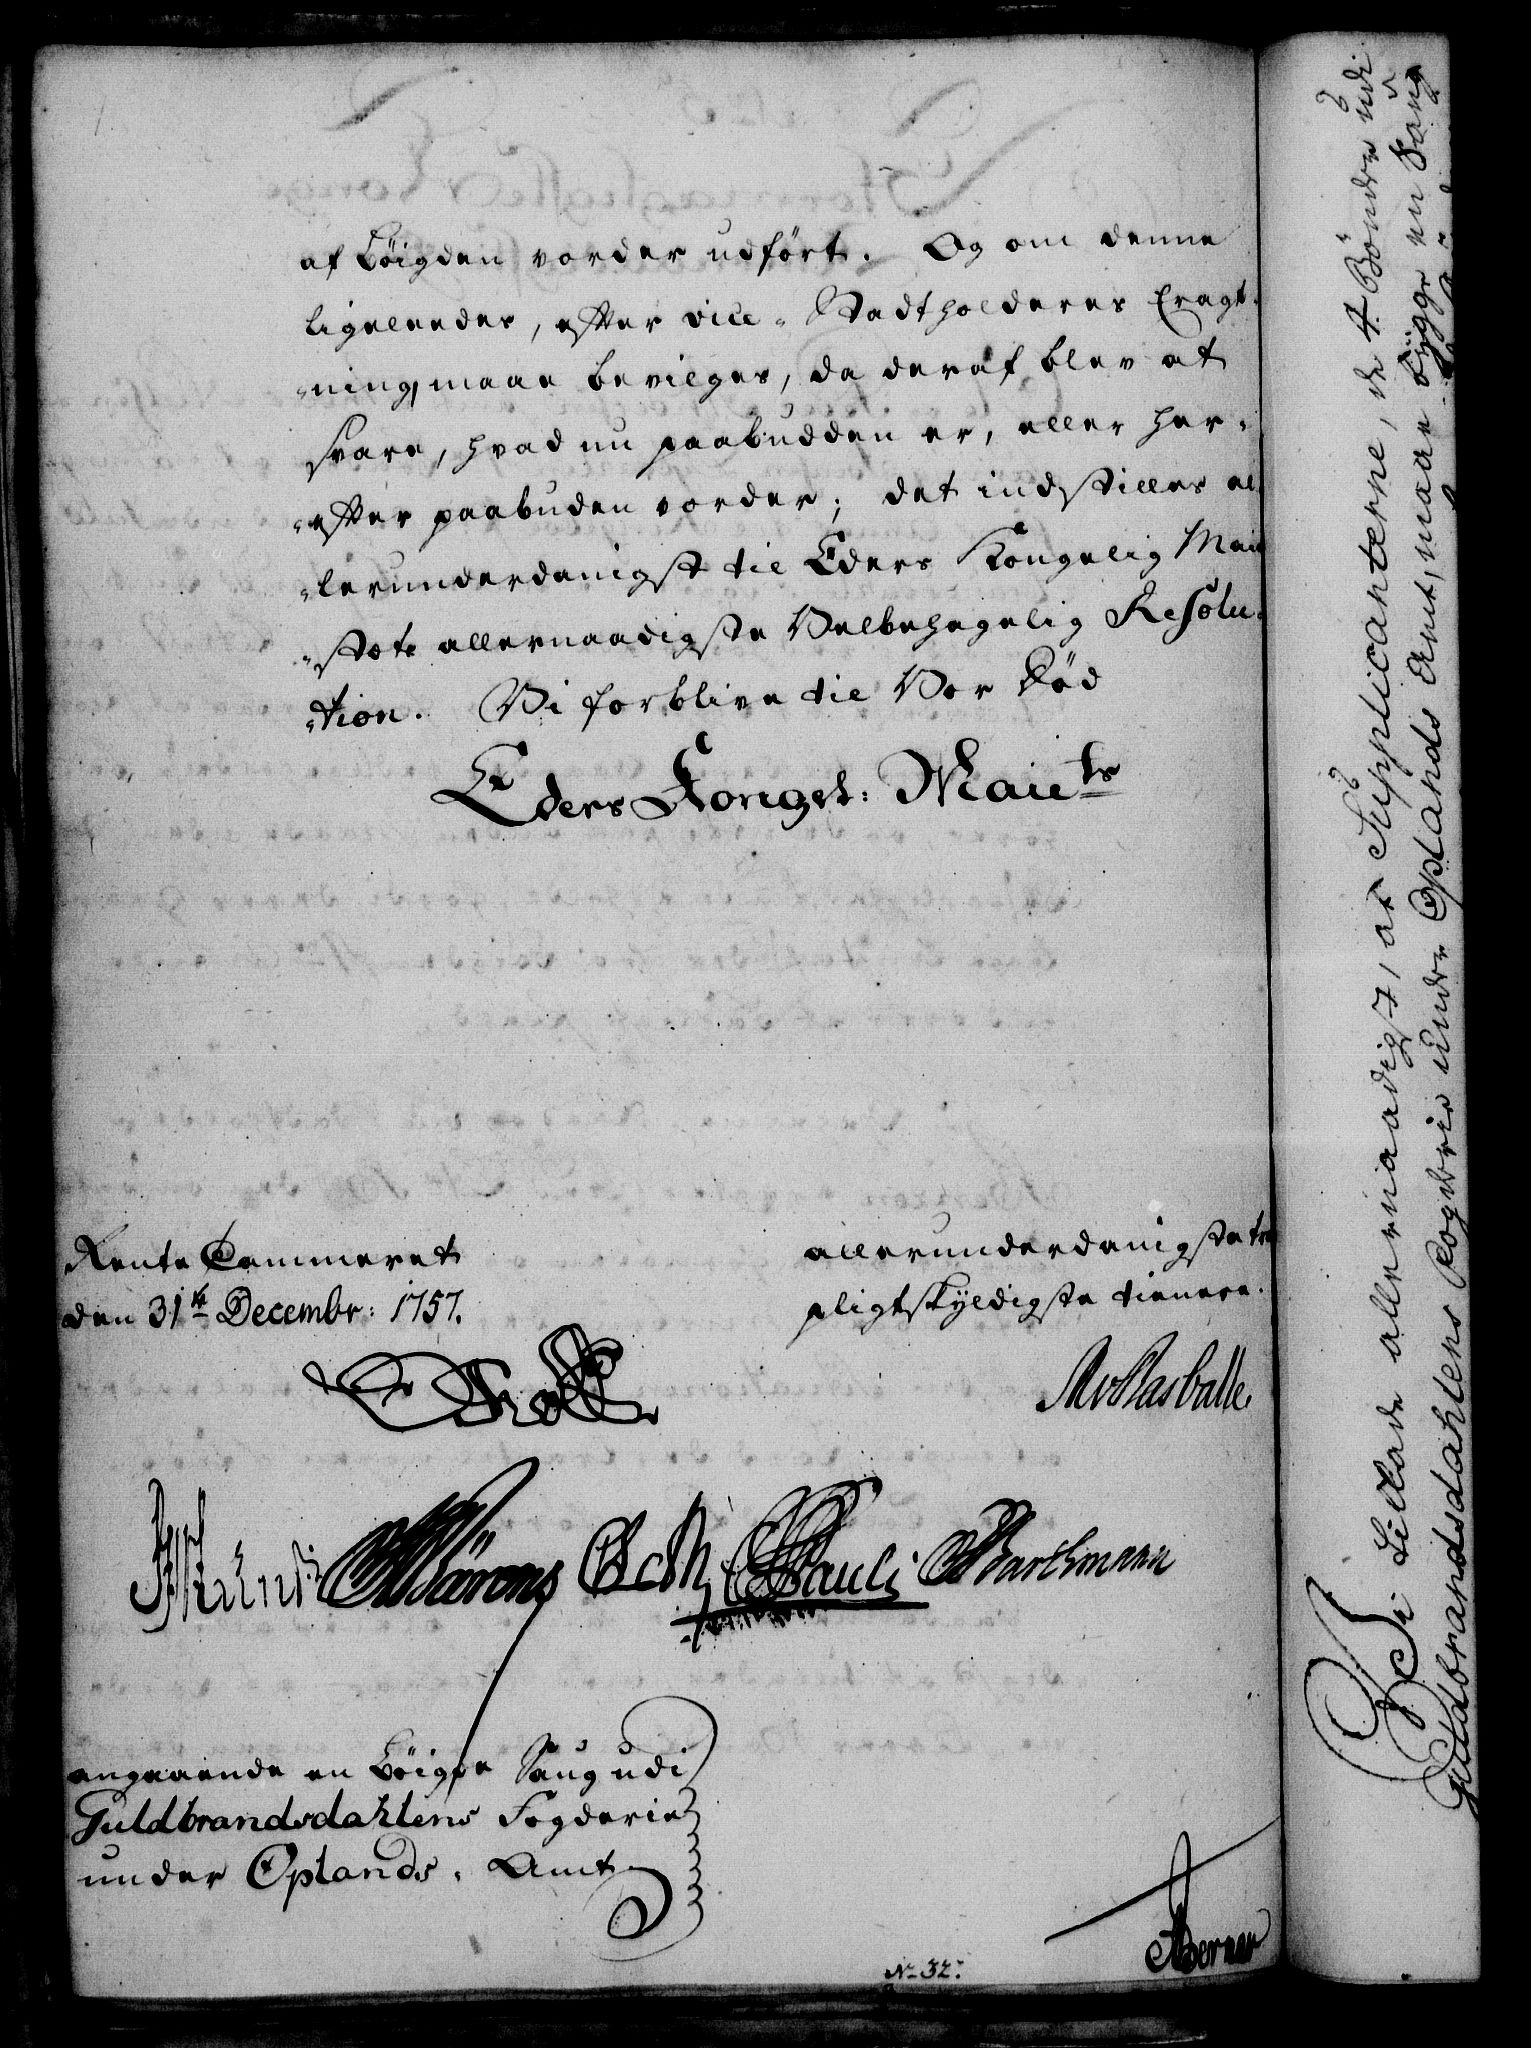 af Bøigden vorder udført. Og om denne
ligeleedes, efter vice-Stadtholderes Eragt-
-ning, maae bevilges, da deraf blev at
svare, hvad nu paabudden er, eller her-
-efter paabuden vorder; det indstilles al-
-lerunderdanigst til Eders Kongelig Maie
-stets allernaadigste Velbehagelig Resolu-
-tion. Vi forblive til Vor Død
Eders Kongel: Maiets
Rente Cammeret
den 31te Decembr: 1757.
allerunderdanigste tro
pligtskyldigste tienere.
Holstein
Rasballe.
Pauli
Barthmann
angaaende en Bøigde Saug udi
Guldbrandsdahlens Fogderie
under Oplands Amt
No 32:
Berner
Vi Lillade allernaadigst, at Supplicanterne, de 4. Bønder udi
Guldbrandsdahlens Fogderie under Oplands Amt, maae bygge en Saug